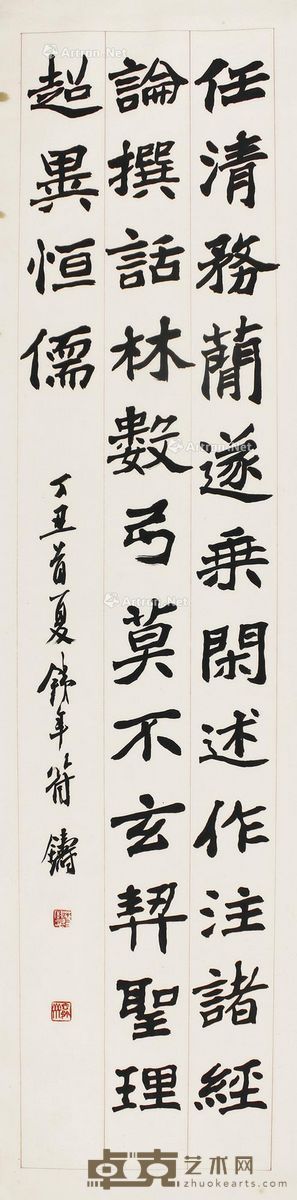 任清務蕳遂乗閑述作注諸經
論撰話林數弓莫不玄契聖理
超異恒儒
丁丑首夏銕年符鑄
Artron.Net
Artron.Net
Artron.Net
Artron.Net
卓克艺术网
www.zhuokearts.com